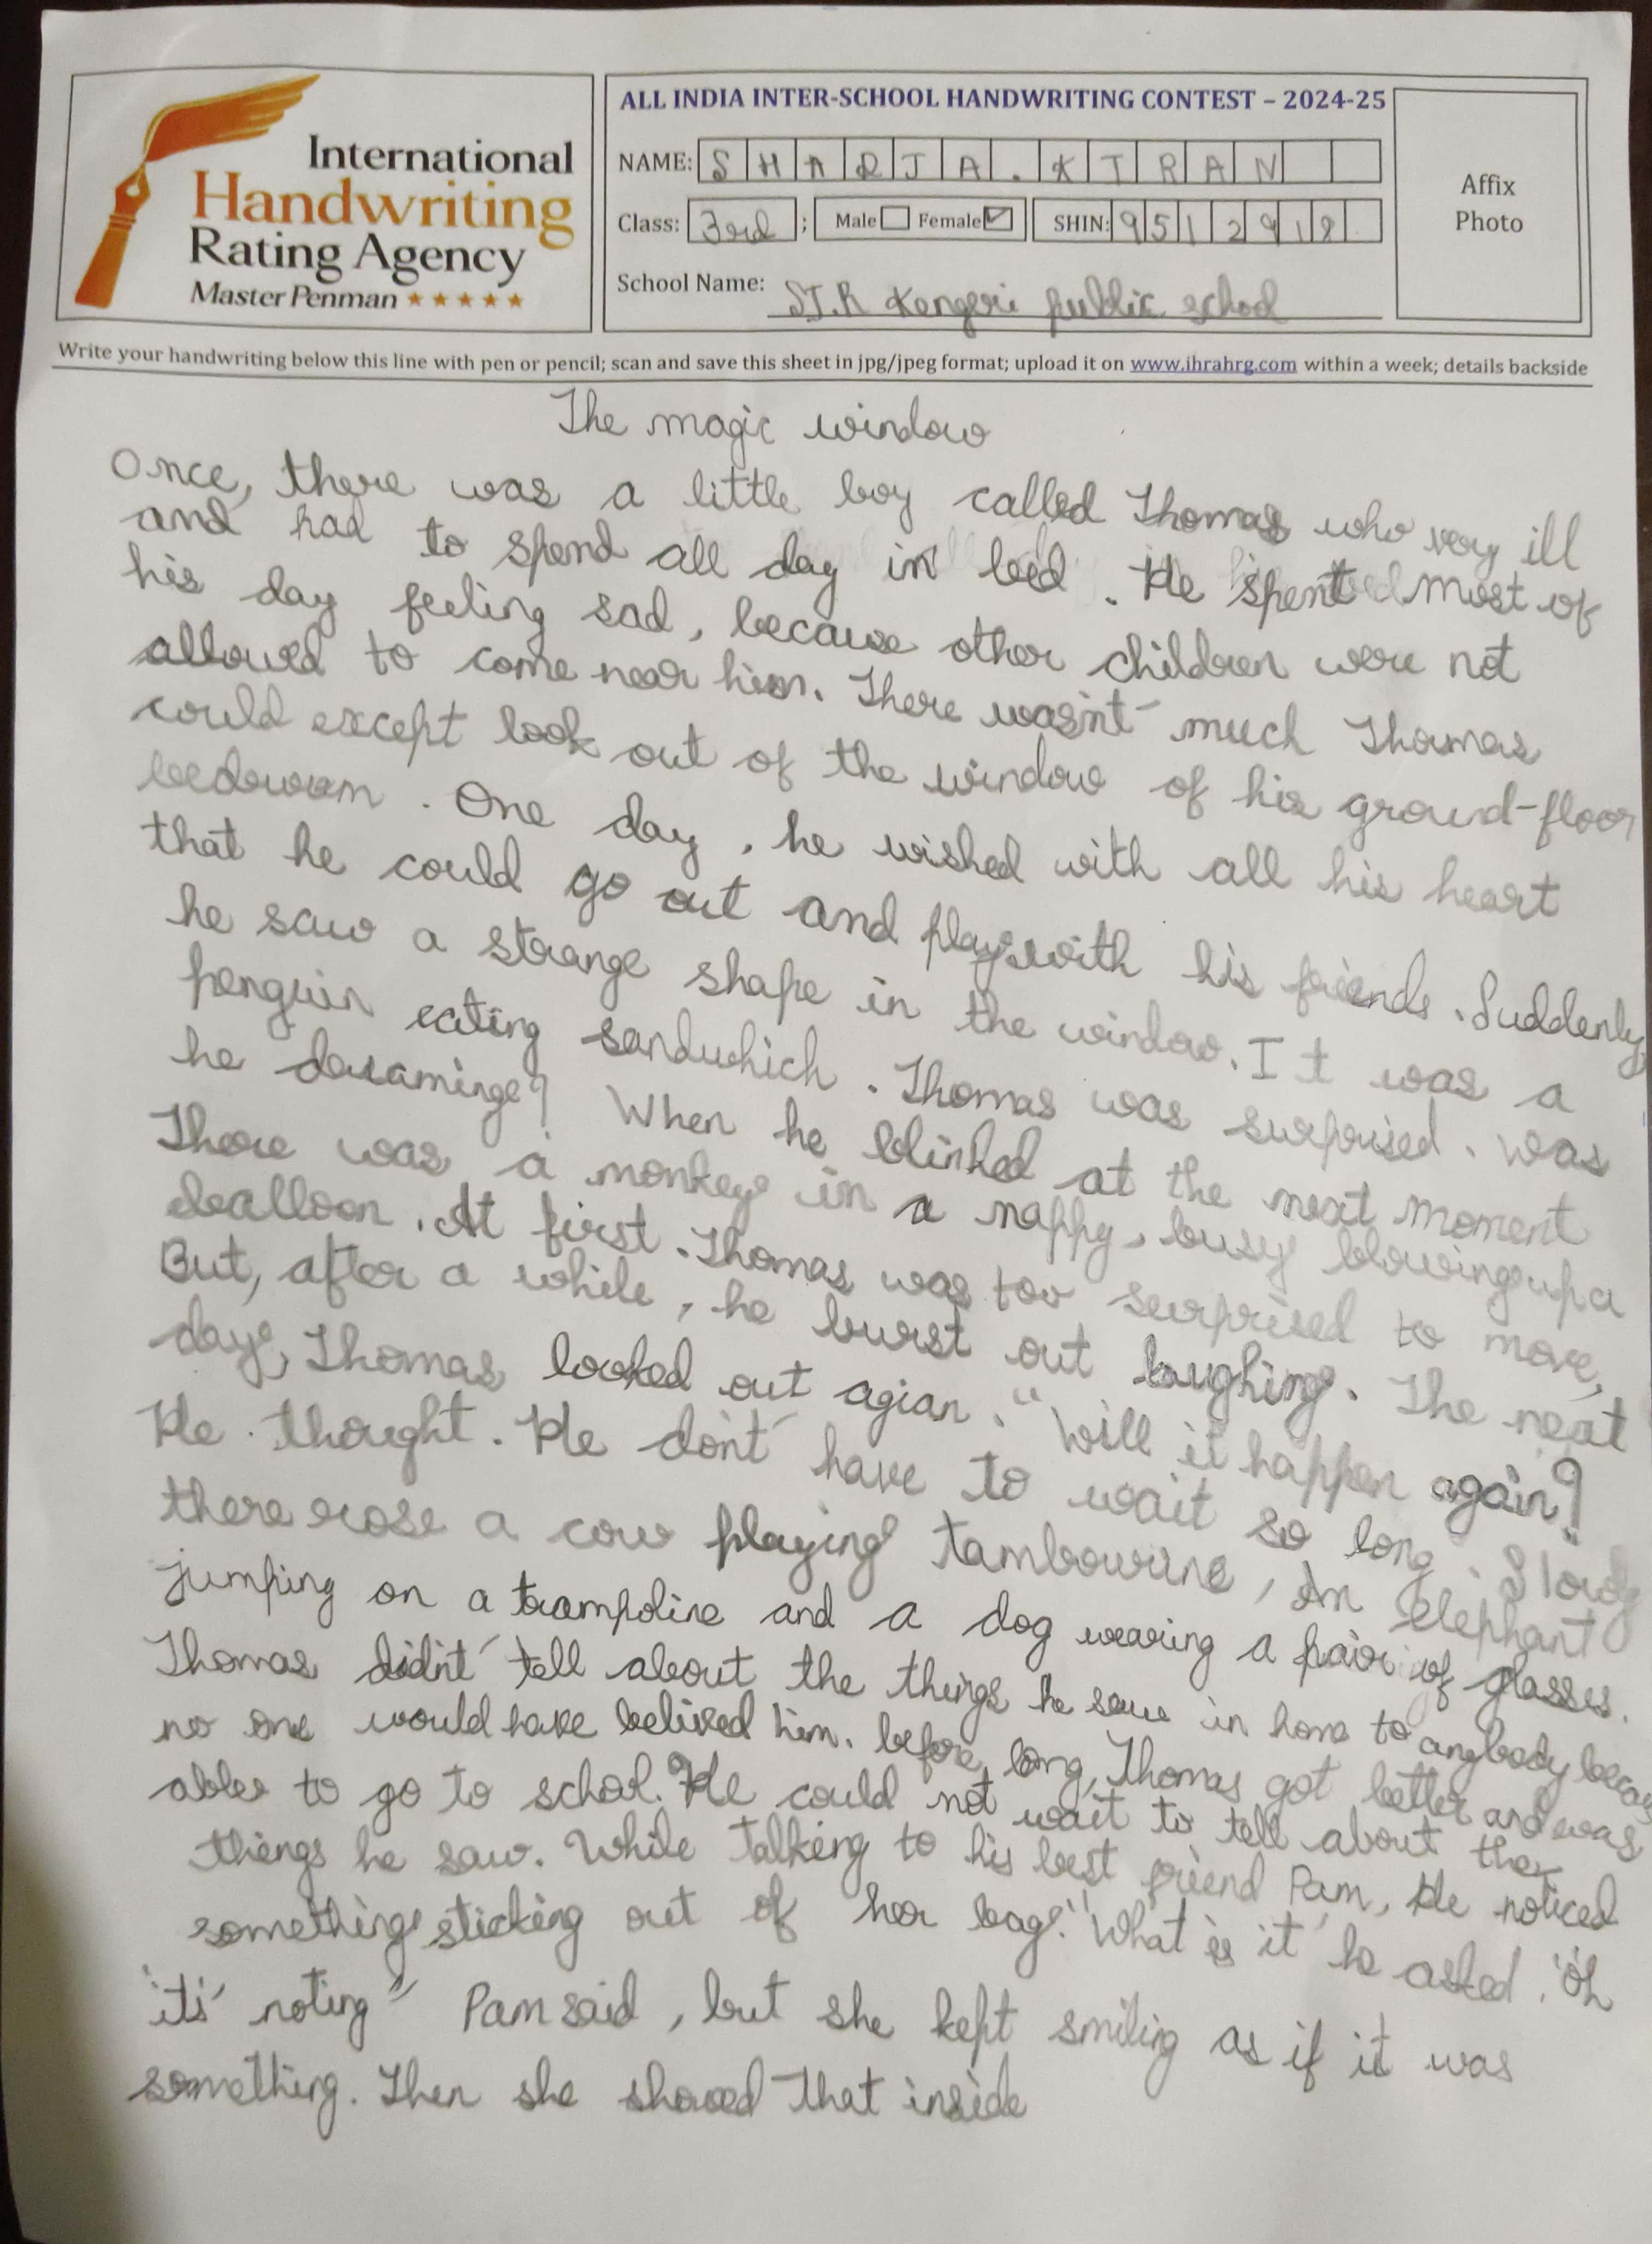 International
Handwriting
Rating Agency
Master Penman ★★★★★
ALL INDIA INTER-SCHOOL HANDWRITING CONTEST – 2024-25
NAME: SHARJA.KIRAN
Class: 3rd ; Male Female ✓ SHIN: 9512918
School Name: ST.R Kengeri public school
Affix
Photo
Write your handwriting below this line with pen or pencil; scan and save this sheet in jpg/jpeg format; upload it on www.ihrahrg.com within a week; details backside
The magic window
Once, there was a little boy called Thomas who very ill
and had to spend all day in bed. He spent most of
his day feeling sad, because other children were not
allowed to come near him. There wasn't much Thomas
could except look out of the window of his ground-floor
bedroom. One day, he wished with all his heart
that he could go out and play with his friends. Suddenly,
he saw a strange shape in the window. It was a
penguin eating sandwhich. Thomas was surprised. Was
he? When he blinked at the next moment
There was a monkey in a nappy, busy blowing up a
balloon. At first. Thomas was too surprised to move,
But, after a while, he burst out laughing. The next
day, Thomas looked out agian. "Will it happen again?
He thought. He don't have to wait so long.
there rose a cow playing tambourine, An elephant
jumping on a trampoline and a dog wearing a pair of glasses.
Thomas didn't tell about the things he saw in home to anybody becau
no one would have belived him. before long, Thomas got better and was
able to go to school. He could not wait to tell about the
things he saw. While talking to his best friend Pam, He noticed
something sticking out of her bag. "What is it" he asked. "Oh
its' noting" Pam said, but she kept smiling as if it was
something. Then she showed that inside